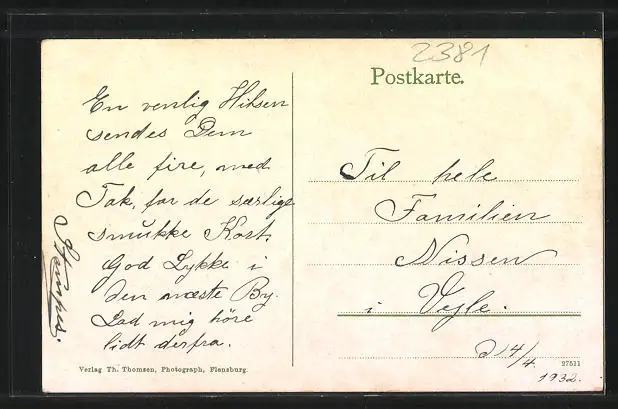 2381
Postkarte.
En venlig Hilsen
sendes Dem
alle fire, med
Tak, for de særlige
smukke Kort.
God Lykke i
den næste By.
Lad mig höre
lidt derfra.
Til hele
Familien
Nissen
i Vejle.
d 14/4.
1932.
Verlag Th. Thomsen, Photograph, Flensburg.
27511